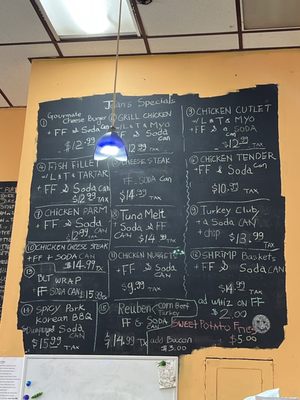 Joan's Specials
① Gourmate
Cheese Burger
+ FF & Soda CAN
$12.99
② GRILL CHICKEN
W/ L & T & MYO
+ FF & Soda CAN
$12.99 TAX
③ CHICKEN CUTLET
W/ L & T & MYO
+ FF & a SODA
CAN
$12.99 TAX
④ FISH FILLET
W/ L & T & TARTAR
+ FF & Soda CAN
$12.99 TAX
CHEESE STEAK
FF & SODA
CAN
$14.99 TAX
⑥ CHICKEN TENDER
+ FF & Soda
CAN
$10.99 TAX
⑦ CHICKEN PARM
+ FF & Soda
CAN
$12.99 TAX
⑧ Tuna Melt
+ FF & Soda
CAN
$14.99 TAX
⑨ Turkey Club
+ a Soda CAN
+ chip
$13.99 TAX
⑩ CHICKEN CHEESE STEAK
+ FF + SODA CAN
$14.99 TAX
CHICKEN NUGGET
+ FF & Soda
CAN
$9.99 TAX
SHRIMP Baskets
+ FF & Soda CAN
$14.99 TAX
⑬
BLT WRAP
+ FF SODA CAN $15.99
ad WHIZ ON FF
$2.00
⑭ Spicy Pork
Korean BBQ
Soda
CAN
$15.99 TAX
⑮ Reuben Corn Beef
Turkey
FF & Soda
CAN
$14.99 TAX
add Bacon
$3.00
Sweet Potato Fries
$5.00